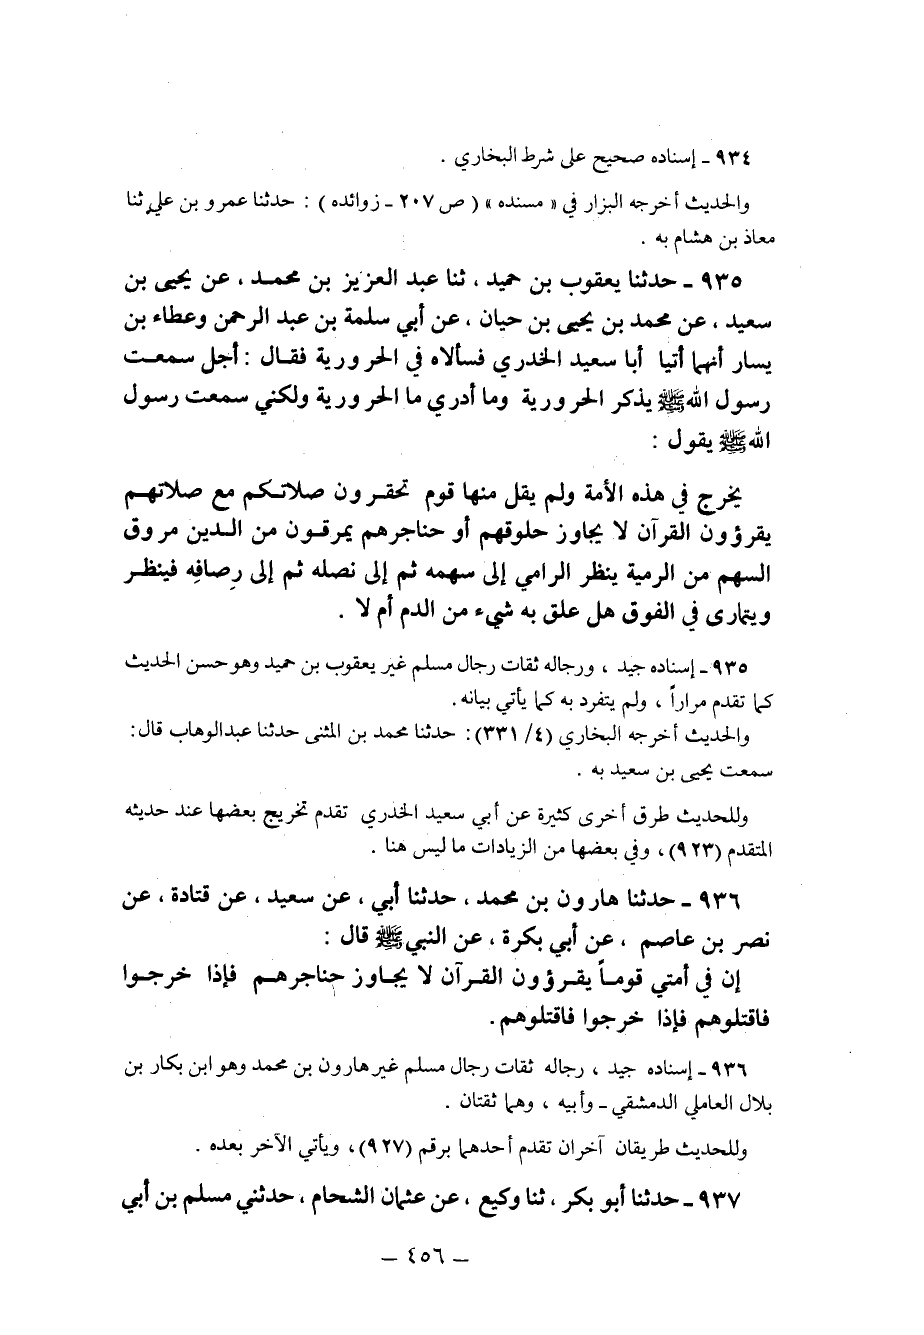 ٩٣٤ ـ إسناده صحيح على شرط البخاري .
والحديث أخرجه البزار في « مسنده » ( ص ٢٠٧ ـ زوائده ) : حدثنا عمرو بن علي ثنا
معاذ بن هشام به .
٩٣٥ ـ حدثنا يعقوب بن حميد ، ثنا عبد العزيز بن محمد ، عن يحيى بن
سعيد ، عن محمد بن يحيى بن حيان ، عن أبي سلمة بن عبد الرحمن وعطاء بن
يسار أنهما أتيا أبا سعيد الخدري فسألاه في الحرورية فقال : أجل سمعت
رسول الله ﷺ يذكر الحرورية وما أدري ما الحرورية ولكني سمعت رسول
الله ﷺ يقول :
يخرج في هذه الأمة ولم يقل منها قوم تحقرون صلاتكم مع صلاتهم
يقرؤون القرآن لا يجاوز حلوقهم أو حناجرهم يمرقون من الدين مروق
السهم من الرمية ينظر الرامي إلى سهمه ثم إلى نصله ثم إلى رِصافِه فينظر
ويتمارى في الفوق هل علق به شيء من الدم أم لا .
٩٣٥ ـ إسناده جيد ، ورجاله ثقات رجال مسلم غير يعقوب بن حميد وهو حسن الحديث
كما تقدم مراراً ، ولم يتفرد به كما يأتي بيانه .
والحديث أخرجه البخاري (٤/ ٣٣١) : حدثنا محمد بن المثنى حدثنا عبدالوهاب قال :
سمعت يحيى بن سعيد به .
وللحديث طرق أخرى كثيرة عن أبي سعيد الخدري تقدم تخريج بعضها عند حديثه
المتقدم (٩٢٣) ، وفي بعضها من الزيادات ما ليس هنا .
٩٣٦ ـ حدثنا هارون بن محمد ، حدثنا أبي ، عن سعيد ، عن قتادة ، عن
نصر بن عاصم ، عن أبي بكرة ، عن النبي ﷺ قال :
إن في أمتي قوماً يقرؤون القرآن لا يجاوز حناجرهم فإذا خرجوا
فاقتلوهم فإذا خرجوا فاقتلوهم .
٩٣٦ ـ إسناده جيد ، رجاله ثقات رجال مسلم غير هارون بن محمد وهو ابن بكار بن
بلال العاملي الدمشقي ـ وأبيه ، وهما ثقتان .
وللحديث طريقان آخران تقدم أحدهما برقم (٩٢٧) ، ويأتي الآخر بعده .
٩٣٧ ـ حدثنا أبو بكر ، ثنا وكيع ، عن عثمان الشحام ، حدثني مسلم بن أبي
ـ ٤٥٦ ـ